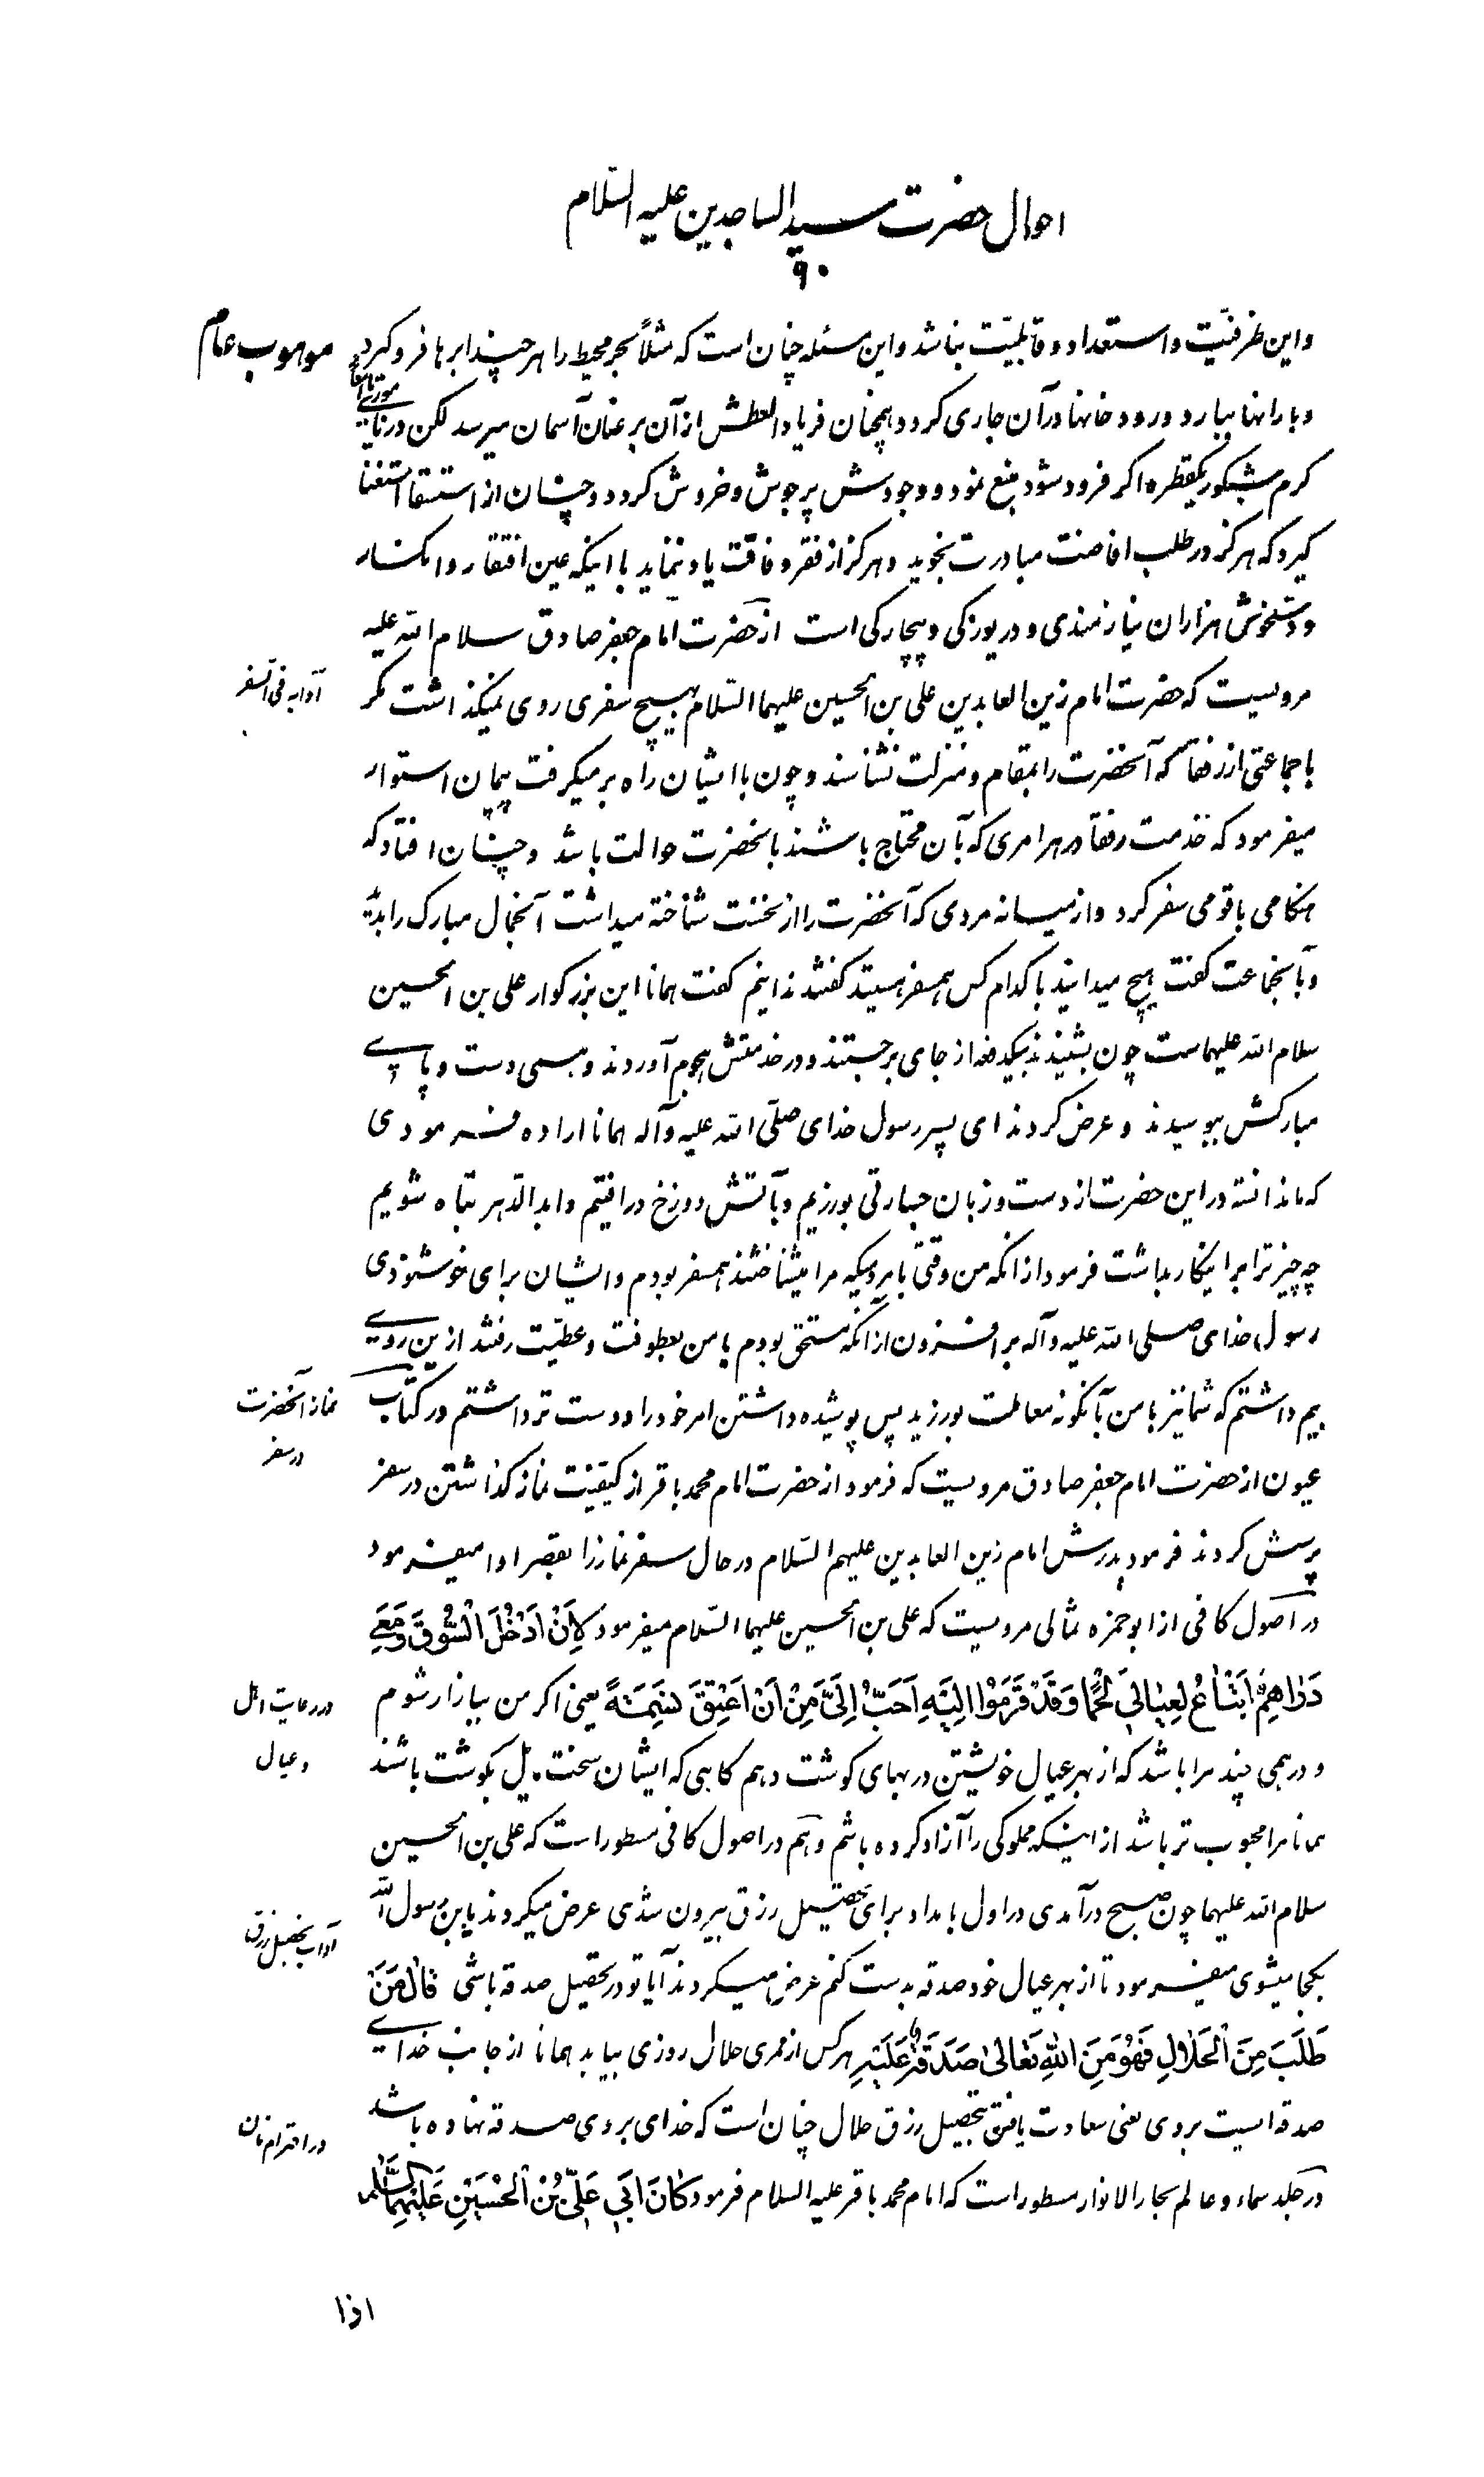 احوال حضرت سید الساجدین علیه السّلام
۹۰
و این ظرفیّت و استعداد و قابلیّت نباشد و این مسئله چنان است که مثلاً بحر محیط را هر چند ابرها فرو گیرد
موهوب عام
و بارانها ببارد و رودخانها در آن جاری گردد همچنان فریاد العطش از آن بر عنان آسمان میرسد لکن در
کرم شبکور یکقطره اگر فرود شود منبع نمود و وجودش پر جوش و خروش گردد و چنان از استسقا استغنا
گیرد که هرگز در طلب افاضت مبادرت نجوید و هرگز از فقر و فاقت یاد ننماید با اینکه عین افتقار و انکسار
و دستخوش هزاران نیازمندی و دریوزگی و بیچارگی است از حضرت امام جعفر صادق سلام الله علیه
مرویست که حضرت امام زین العابدین علی بن الحسین علیهما السّلام بهیچ سفری روی نمیگذاشت مگر
آدابه فی السّفر
با جماعتی از رفقا که آنحضرت را بمقام و منزلت نشناسند و چون با ایشان راه بر میگرفت پیمان استوار
میفرمود که خدمت رفقا در هر امری که بآن محتاج باشند بآنحضرت حوالت باشد و چنان افتاد که
هنگامی با قومی سفر کرد و از میانه مردی که آنحضرت را از نخست شناخته میداشت آنجمال مبارک را بدید
و بآنجماعت گفت هیچ میدانید با کدام کس همسفر هستید گفتند ندانیم گفت همانا این بزرگوار علی بن الحسین
سلام الله علیهماست چون بشنیدند بیکدفعه از جای برجستند و در خدمتش هجوم آوردند و همی دست و پای
مبارکش ببوسیدند و عرض کردند ای پسر رسول خدای صلّی الله علیه و آله همانا اراده فرمودی
که ما ندانسته در این حضرت از دست و زبان جسارتی بورزیم و بآتش دوزخ در افتیم و ابد الدّهر تباه شویم
چه چیز ترا بر اینکار بداشت فرمود از آنکه من وقتی با مردمیکه مرا میشناختند همسفر بودم و ایشان برای خوشنودی
رسول خدای صلی الله علیه و آله بر افزون از آنکه مستحق بودم با من بعطوفت و عطیّت رفتند ازین روی
بیم داشتم که شما نیز با من بآنگونه معاملت بورزید پس پوشیده داشتن امر خود را دوست تر داشتم در کتاب
نماز آنحضرت
در سفر
عیون از حضرت امام جعفر صادق مرویست که فرمود از حضرت امام محمد باقر از کیفیّت نماز گذاشتن در سفر
پرسش کردند فرمود پدرش امام زین العابدین علیهم السّلام در حال سفر نماز را بقصر ادا میفرمود
در اصول کافی از ابو حمزه ثمالی مرویست که علی بن الحسین علیهما السّلام میفرمود لَاِنْ اَدْخُلَ السُّوقَ وَمَعِی
دَرَاهِمُ اَبْتَاعُ لِعِیَالِی لَحْمًا وَقَدْ قَرِمُوا اِلَیْهِ اَحَبُّ اِلَیَّ مِنْ اَنْ اُعْتِقَ نَسِمَةً یعنی اگر من ببازار شوم
در رعایت اهل
و عیال
و درهمی چند مرا باشد که از بهر عیال خویشتن در بهای گوشت دهم گاهی که ایشان سخت مایل بگوشت باشند
همانا مرا محبوب تر باشد از اینکه مملوکی را آزاد کرده باشم و هم در اصول کافی مسطور است که علی بن الحسین
سلام الله علیهما چون صبح در آمدی در اول بامداد برای تحصیل رزق بیرون شدی عرض میکردند یابن رسول الله
آداب تحصیل رزق
بکجا میشوی میفرمود تا از بهر عیال خود صدقه بدست کنم عرض میکردند آیا تو در تحصیل صدقه باشی قَالَ مَنْ
طَلَبَ مِنَ الْحَلَالِ فَهُوَ مِنَ اللهِ تَعَالیٰ صَدَقَةٌ عَلَیْهِ هر کس از ممری حلال روزی بیابد همانا از جانب خدای
صدقه ایست بروی یعنی سعادت یافتن بتحصیل رزق حلال چنان است که خدای بروی صدقه نهاده باشد
در احترام نان
در جلد سماء و عالم بحار الانوار مسطور است که امام محمد باقر علیه السلام فرمود کَانَ اَبِی عَلِیُّ بْنُ الْحُسَیْنِ عَلَیْهِمَا السَّلَامُ
اذا